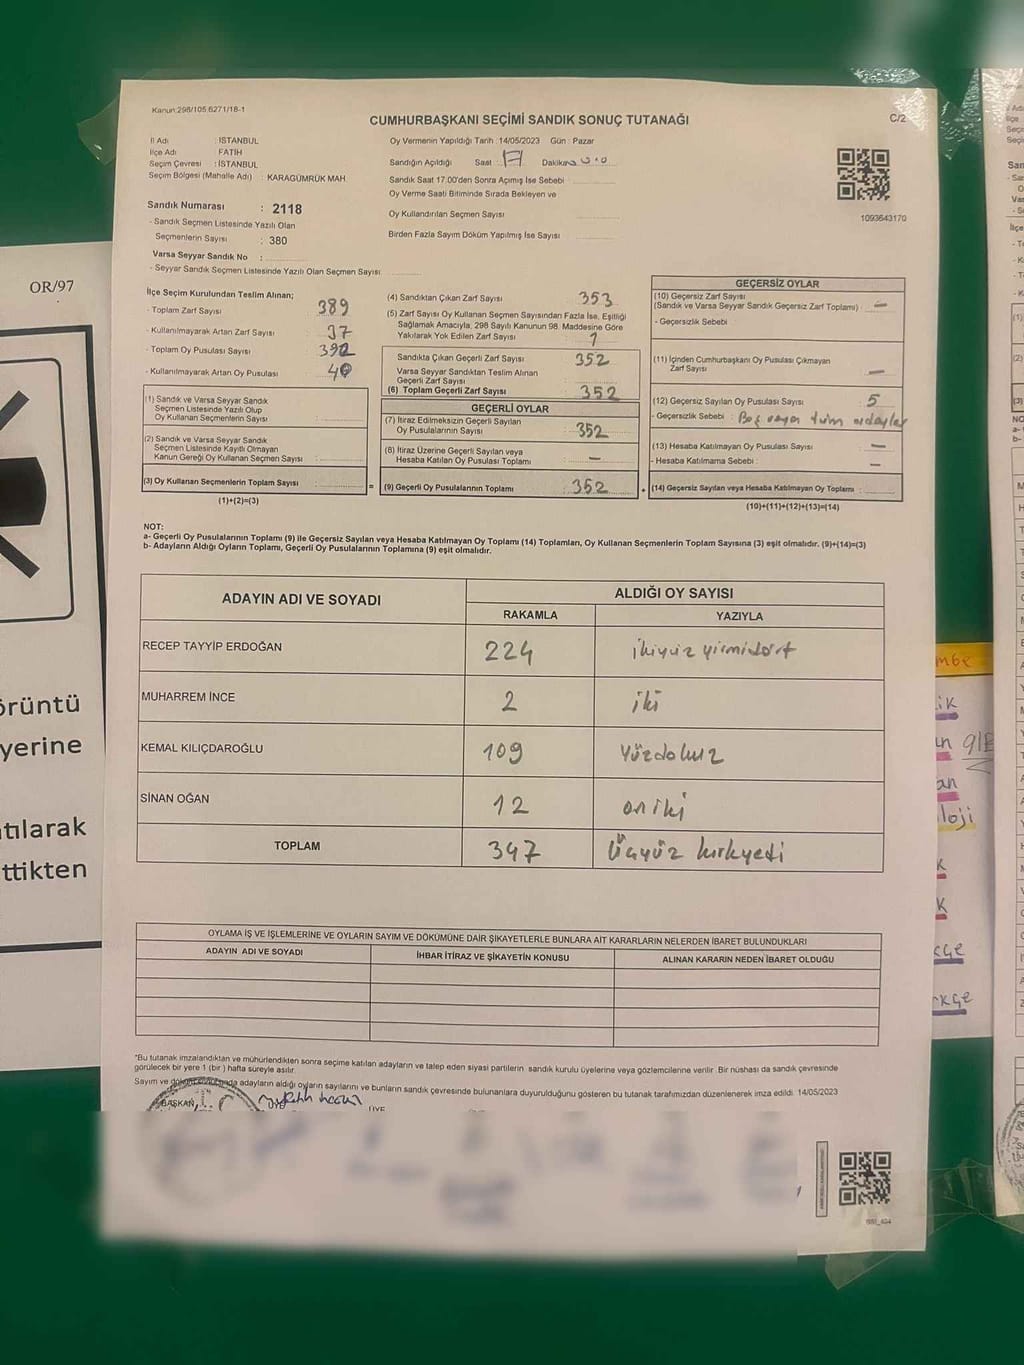 Kanun:298/105.6271/18-1
CUMHURBAŞKANI SEÇİMİ SANDIK SONUÇ TUTANAĞI
C/2
İl Adı : İSTANBUL
İlçe Adı : FATİH
Seçim Çevresi : İSTANBUL
Seçim Bölgesi (Mahalle Adı) : KARAGÜMRÜK MAH.
Oy Vermenin Yapıldığı Tarih : 14/05/2023 Gün : Pazar
Sandığın Açıldığı Saat : 17 Dakika
Sandık Saat 17.00'den Sonra Açımış İse Sebebi
Oy Verme Saati Bitiminde Sırada Bekleyen ve
Oy Kullandırılan Seçmen Sayısı
Birden Fazla Sayım Döküm Yapılmış İse Sayısı
1093643170
Sandık Numarası : 2118
- Sandık Seçmen Listesinde Yazılı Olan
Seçmenlerin Sayısı : 380
Varsa Seyyar Sandık No :
- Seyyar Sandık Seçmen Listesinde Yazılı Olan Seçmen Sayısı
İlçe Seçim Kurulundan Teslim Alınan;
- Toplam Zarf Sayısı 389
- Kullanılmayarak Artan Zarf Sayısı 37
- Toplam Oy Pusulası Sayısı
- Kullanılmayarak Artan Oy Pusulası
(1) Sandık ve Varsa Seyyar Sandık
Seçmen Listesinde Yazılı Olup
Oy Kullanan Seçmenlerin Sayısı
(2) Sandık ve Varsa Seyyar Sandık
Seçmen Listesinde Kayıtlı Olmayan
Kanun Gereği Oy Kullanan Seçmen Sayısı
(3) Oy Kullanan Seçmenlerin Toplam Sayısı
(1)+(2)=(3)
(4) Sandıktan Çıkan Zarf Sayısı 353
(5) Zarf Sayısı Oy Kullanan Seçmen Sayısından Fazla İse, Eşitliği
Sağlamak Amacıyla, 298 Sayılı Kanunun 98. Maddesine Göre
Yakılarak Yok Edilen Zarf Sayısı 1
Sandıkta Çıkan Geçerli Zarf Sayısı 352
Varsa Seyyar Sandıktan Teslim Alınan
Geçerli Zarf Sayısı
(6) Toplam Geçerli Zarf Sayısı 352
GEÇERLİ OYLAR
(7) İtiraz Edilmeksizin Geçerli Sayılan
Oy Pusulalarının Sayısı 352
(8) İtiraz Üzerine Geçerli Sayılan veya
Hesaba Katılan Oy Pusulası Toplamı –
= (9) Geçerli Oy Pusulalarının Toplamı 352
GEÇERSİZ OYLAR
(10) Geçersiz Zarf Sayısı
(Sandık ve Varsa Seyyar Sandık Geçersiz Zarf Toplamı) : –
- Geçersizlik Sebebi :
(11) İçinden Cumhurbaşkanı Oy Pusulası Çıkmayan
Zarf Sayısı –
(12) Geçersiz Sayılan Oy Pusulası Sayısı : 5
- Geçersizlik Sebebi : Boş veya tüm adaylar
(13) Hesaba Katılmayan Oy Pusulası Sayısı : –
- Hesaba Katılmama Sebebi : –
+ (14) Geçersiz Sayılan veya Hesaba Katılmayan Oy Toplamı :
(10)+(11)+(12)+(13)=(14)
NOT:
a- Geçerli Oy Pusulalarının Toplamı (9) ile Geçersiz Sayılan veya Hesaba Katılmayan Oy Toplamı (14) Toplamları, Oy Kullanan Seçmenlerin Toplam Sayısına (3) eşit olmalıdır. (9)+(14)=(3)
b- Adayların Aldığı Oyların Toplamı, Geçerli Oy Pusulalarının Toplamına (9) eşit olmalıdır.
ADAYIN ADI VE SOYADI
ALDIĞI OY SAYISI
RAKAMLA YAZIYLA
RECEP TAYYİP ERDOĞAN 224 ikiyüz yirmidört
MUHARREM İNCE 2 iki
KEMAL KILIÇDAROĞLU 109 Yüzdokuz
SİNAN OĞAN 12 oniki
TOPLAM 347 Üçyüz kırkyedi
OYLAMA İŞ VE İŞLEMLERİNE VE OYLARIN SAYIM VE DÖKÜMÜNE DAİR ŞİKAYETLERLE BUNLARA AİT KARARLARIN NELERDEN İBARET BULUNDUKLARI
ADAYIN ADI VE SOYADI
İHBAR İTİRAZ VE ŞİKAYETİN KONUSU
ALINAN KARARIN NEDEN İBARET OLDUĞU
*Bu tutanak imzalandıktan ve mühürlendikten sonra seçime katılan adayların ve talep eden siyasi partilerin sandık kurulu üyelerine veya gözlemcilerine verilir. Bir nüshası da sandık çevresinde
görülecek bir yere 1 (bir) hafta süreyle asılır.
Sayım ve dökümünde adayların aldığı oyların sayılarını ve bunların sandık çevresinde bulunanlara duyurulduğunu gösteren bu tutanak tarafımızdan düzenlenerek imza edildi. 14/05/2023
BAŞKAN
ÜYE
ÜYE
OR/97
örüntü
yerine
tılarak
ttikten